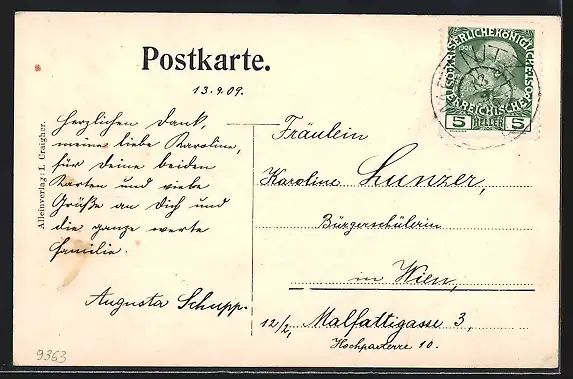 Postkarte.
13.9.09.
Herzlichen Dank,
meine liebe Karoline,
für Deine beiden
Karten und viele
Grüße an Dich und
die ganze werte
Familie.
Augusta Schupp.
Alleinverlag: L. Craigher.
9363
Fräulein
Karoline Lunzer,
Bürgerschülerin
in Wien,
12/2, Malfattigasse 3,
Hochparterre 10.
1908
5 HELLER 5